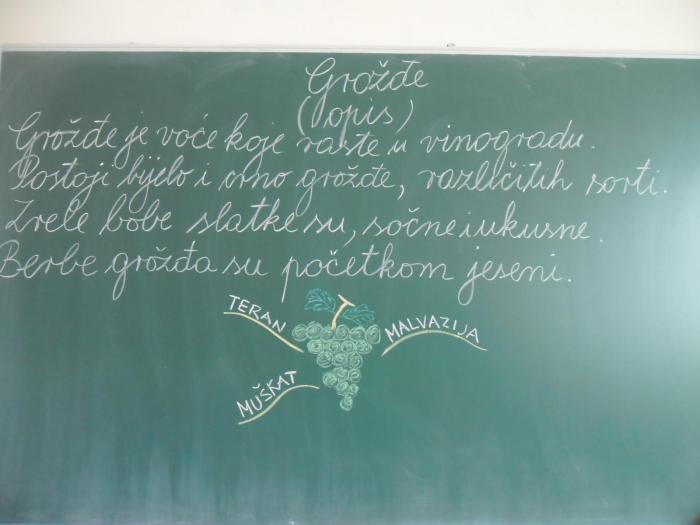 Grožđe
(opis)
Grožđe je voće koje raste u vinogradu.
Postoji bijelo i crno grožđe, različitih sorti.
Zrele bobe slatke su, sočne i ukusne.
Berbe grožđa su početkom jeseni.
TERAN
MALVAZIJA
MUŠKAT